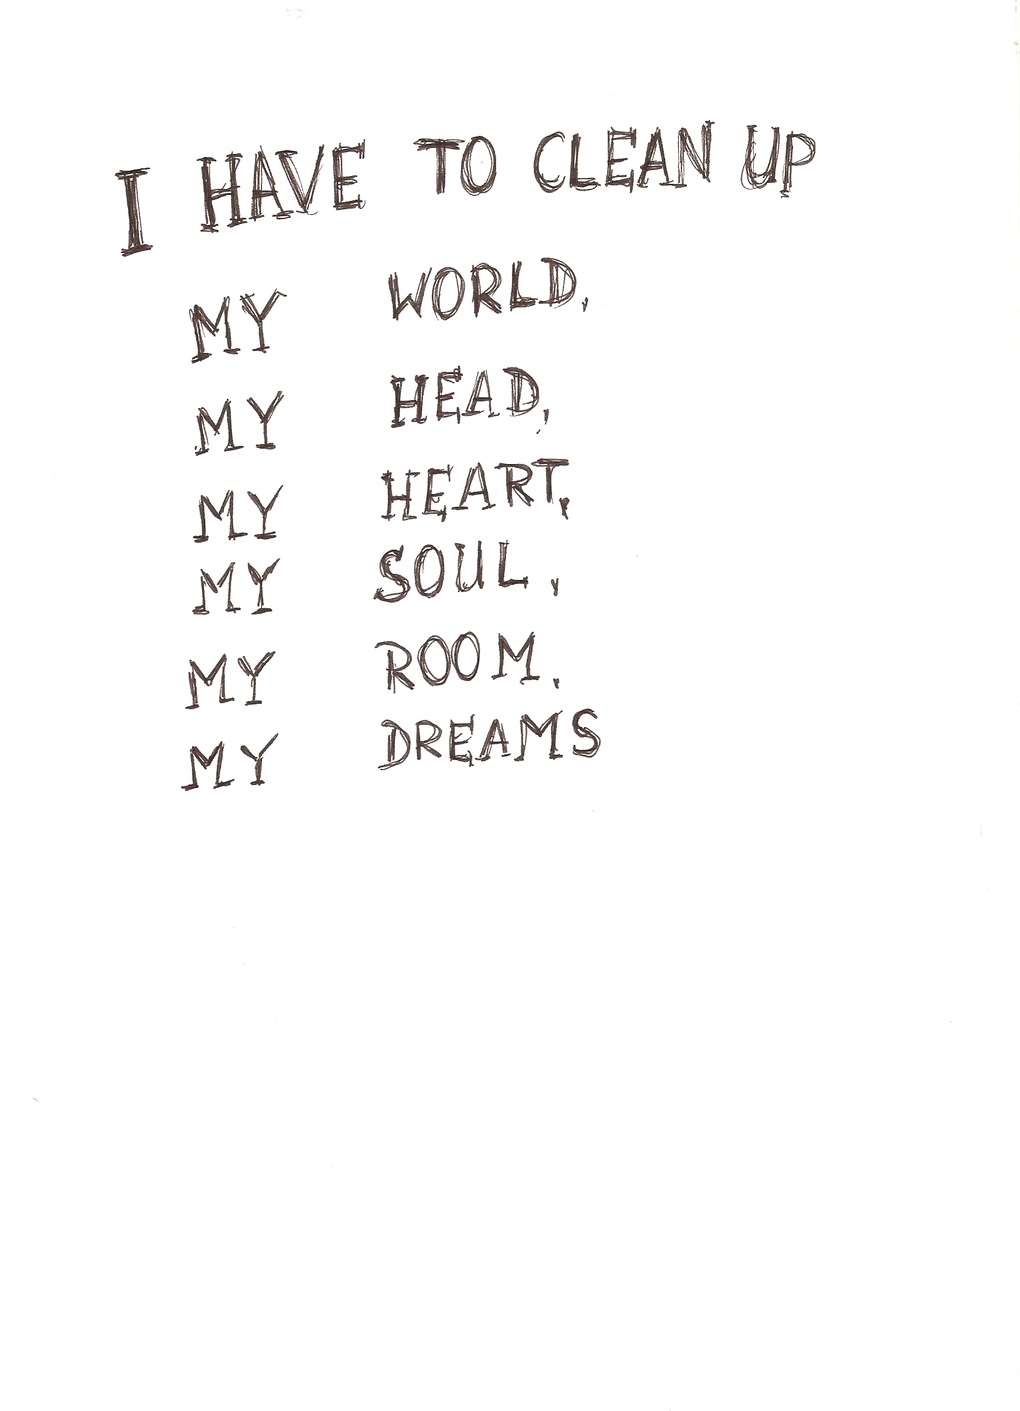 I HAVE TO CLEAN UP
MY WORLD,
MY HEAD,
MY HEART,
MY SOUL,
MY ROOM,
MY DREAMS